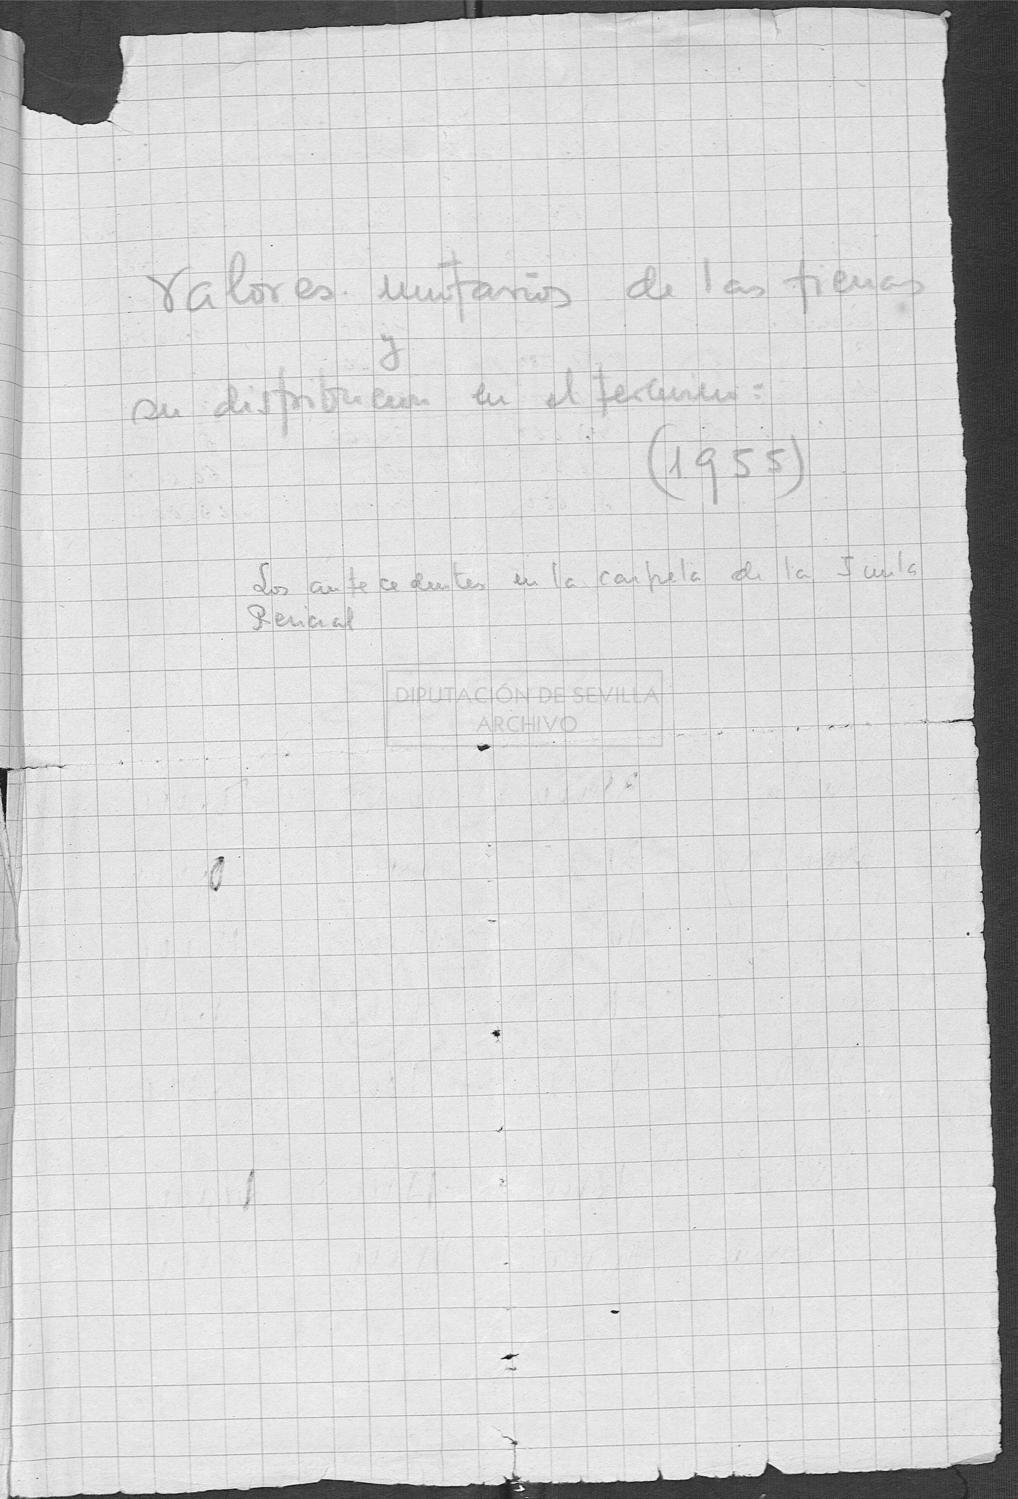 Valores unitarios de las tierras
y
su distribucion en el termino:
(1955)
Los antecedentes en la carpeta de la Junta
Pericial
DIPUTACIÓN DE SEVILLA
ARCHIVO